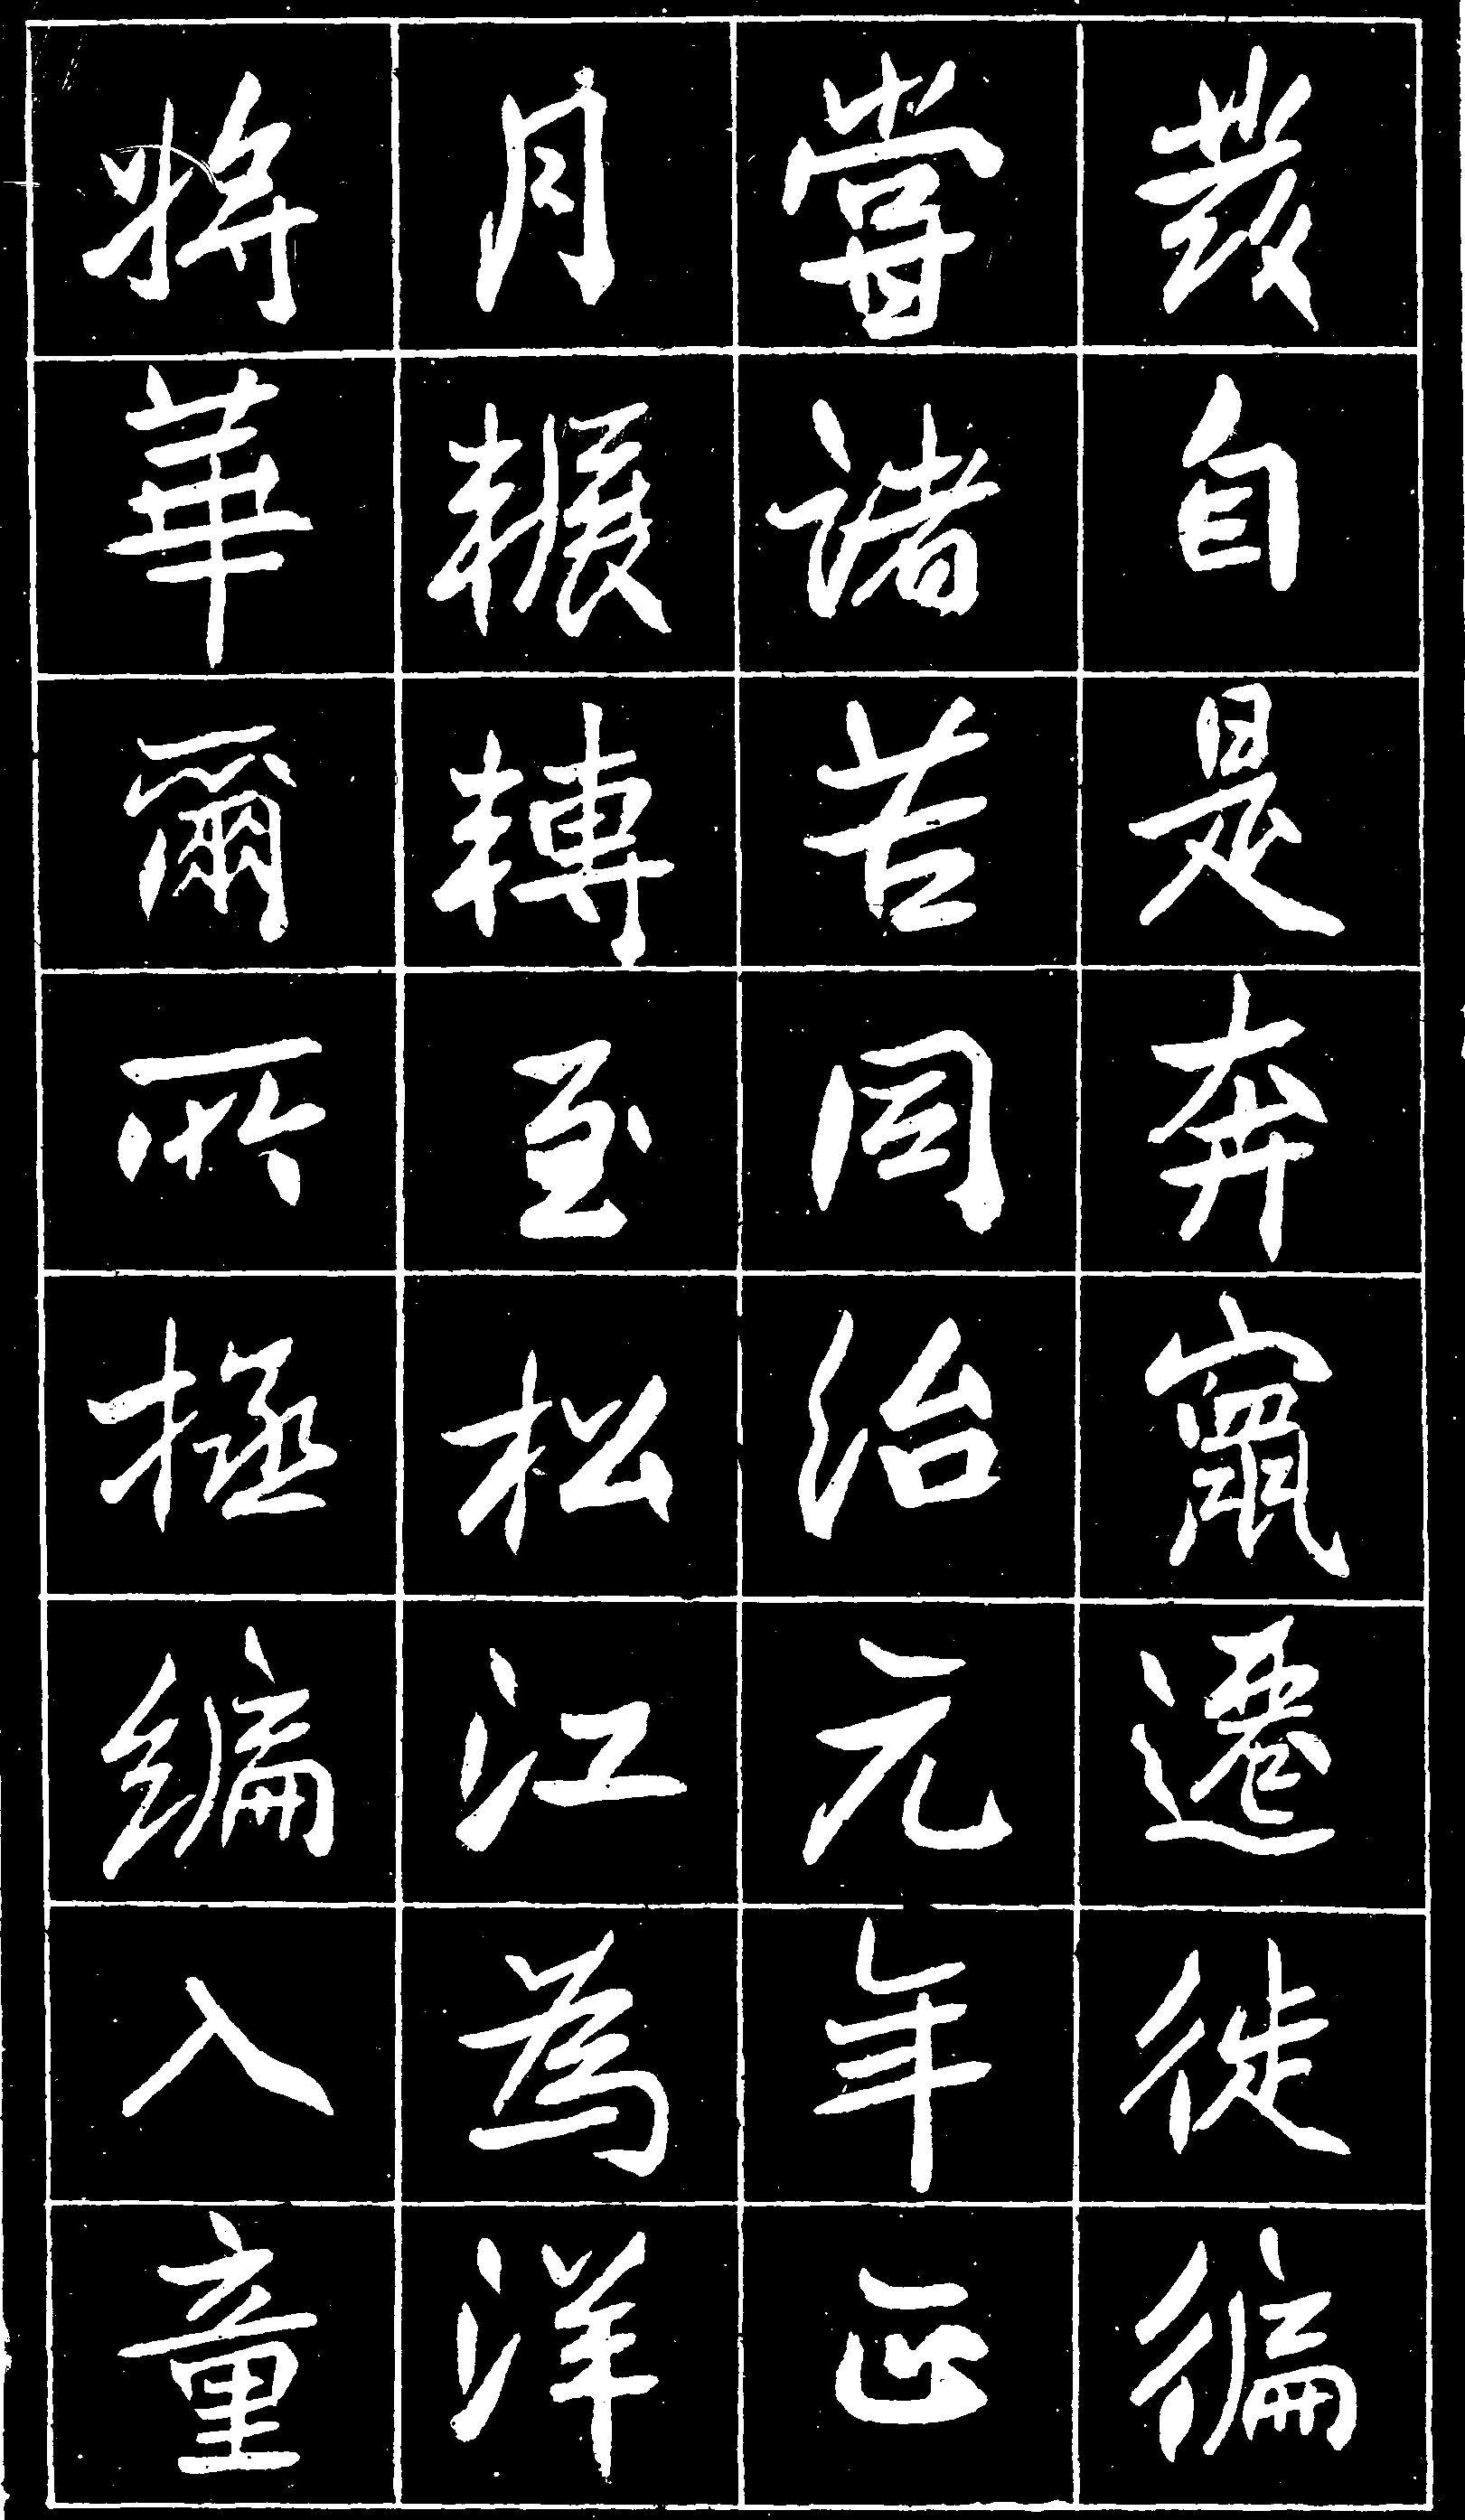 發自是奔竄遷徙徧
嘗諸苦同治元年正
月輾轉至松江為洋
將華爾所拯編入童